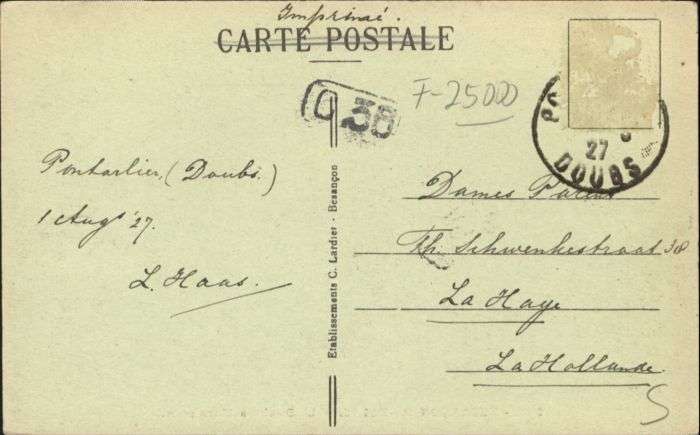 Imprimé.
CARTE POSTALE
C 38
F-25000
27
DOUBS
Pontarlier, (Doubs.)
1 Augs '27.
L. Haas.
Etablissements C. Lardier - Besançon
Dames
Th. Schwenkestraat 38
La Haye
La Hollande.